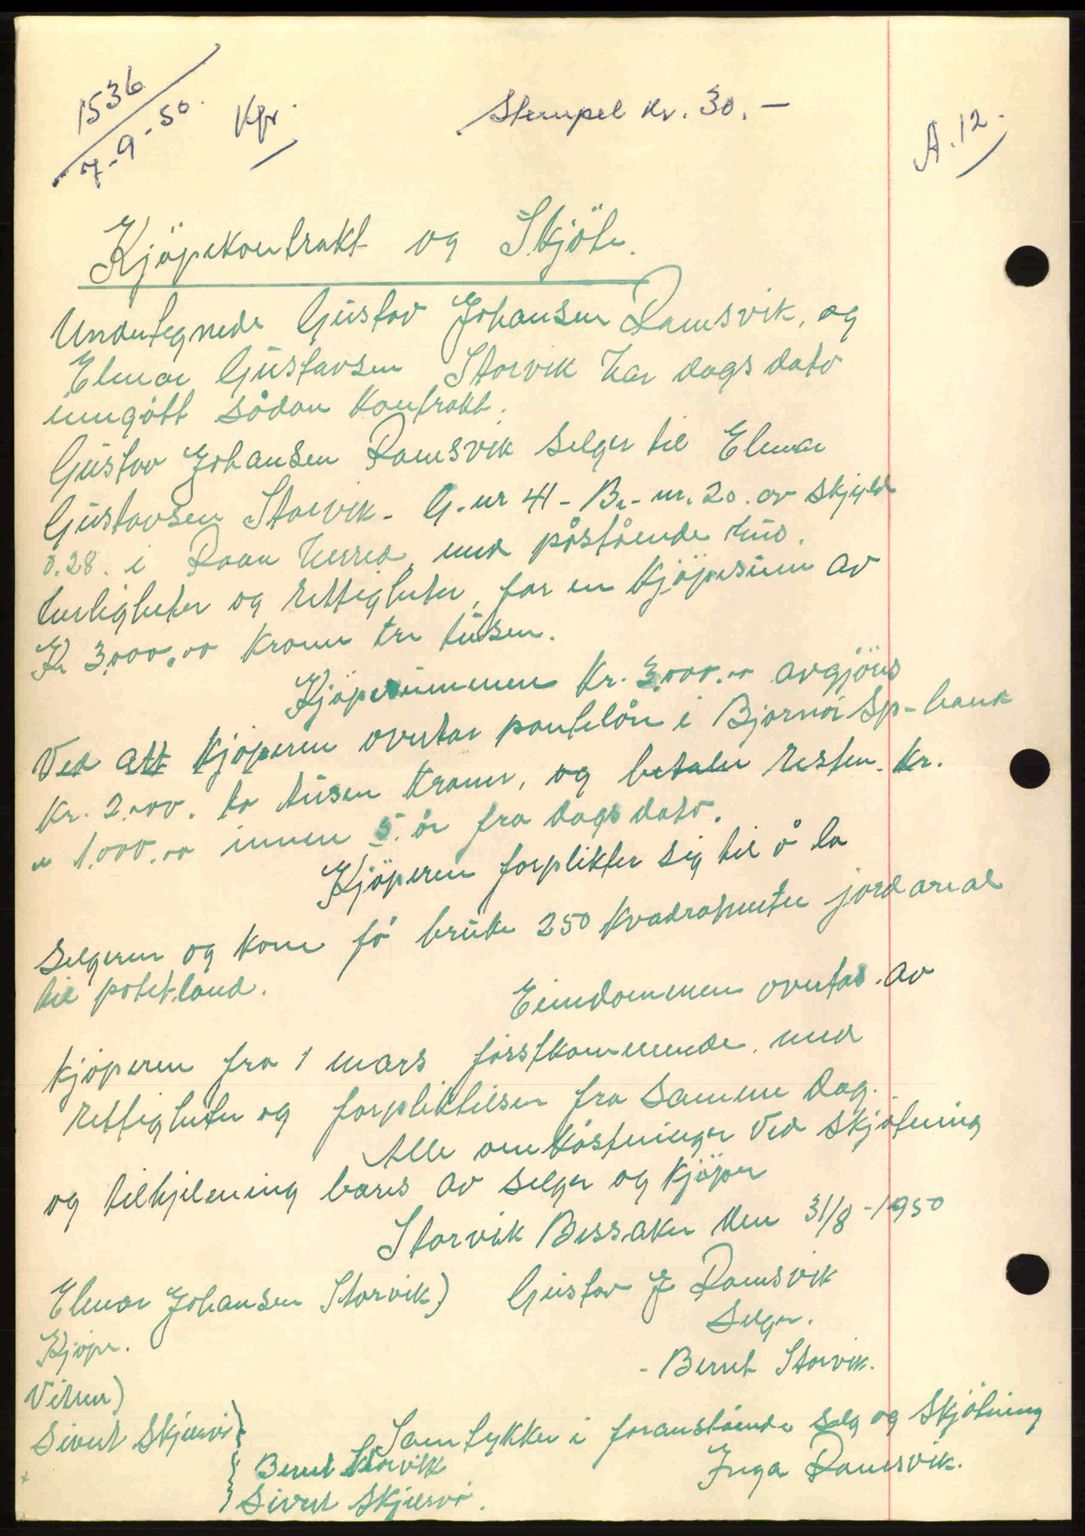 1536
7-9-50.
Kpr.
Stempel kr. 30.-
A.12.
Kjöpekontrakt og Skjöte.
Undertegnede Gustav Johansen Ramsvik, og
Elmar Gustavsen Storvik har dags dato
inngått sådan kontrakt.
Gustav Johansen Ramsvik selger til Elmar
Gustavsen Storvik - G-nr 41 - Br.- nr. 20. av skjyld
0.28. i Roan herred, med påstående hus.
herligheter og rettigheter, for en kjöpesum av
Kr 3.000.00 kroner tre tusen.
Kjöpesummen kr. 3.000.00 avgjöres
Ved att kjöperen overtar pantelån i Bjørnör Sp-bank
kr. 2.000. to tusen kroner, og betaler resten. kr.
" 1.000.00 innen 5. år fra dags dato.
Kjöperen forplikter sig til å la
selgeren og kone få bruke 250 kvadratmeter jordareal
til potet-land.
Eiendommen overtas av
kjöperen fra 1 mars förstkommende. med
rettigheter og forpliktelser fra samme dag.
Alle omkåstninger ved skjötning
og tilhjelning bæres av selger og kjöper
Storvik Bessaker den 31/8 - 1950
Elmar Johansen Storvik) Gustav J Ramsvik
Kjöper. Selger.
- Bernt Storvik.
Vitner)
Sivert Skjærvö)
Samtykker i foranstående salg og skjötning
Bernt Storvik Inga Ramsvik.
Sivert Skjærvö.